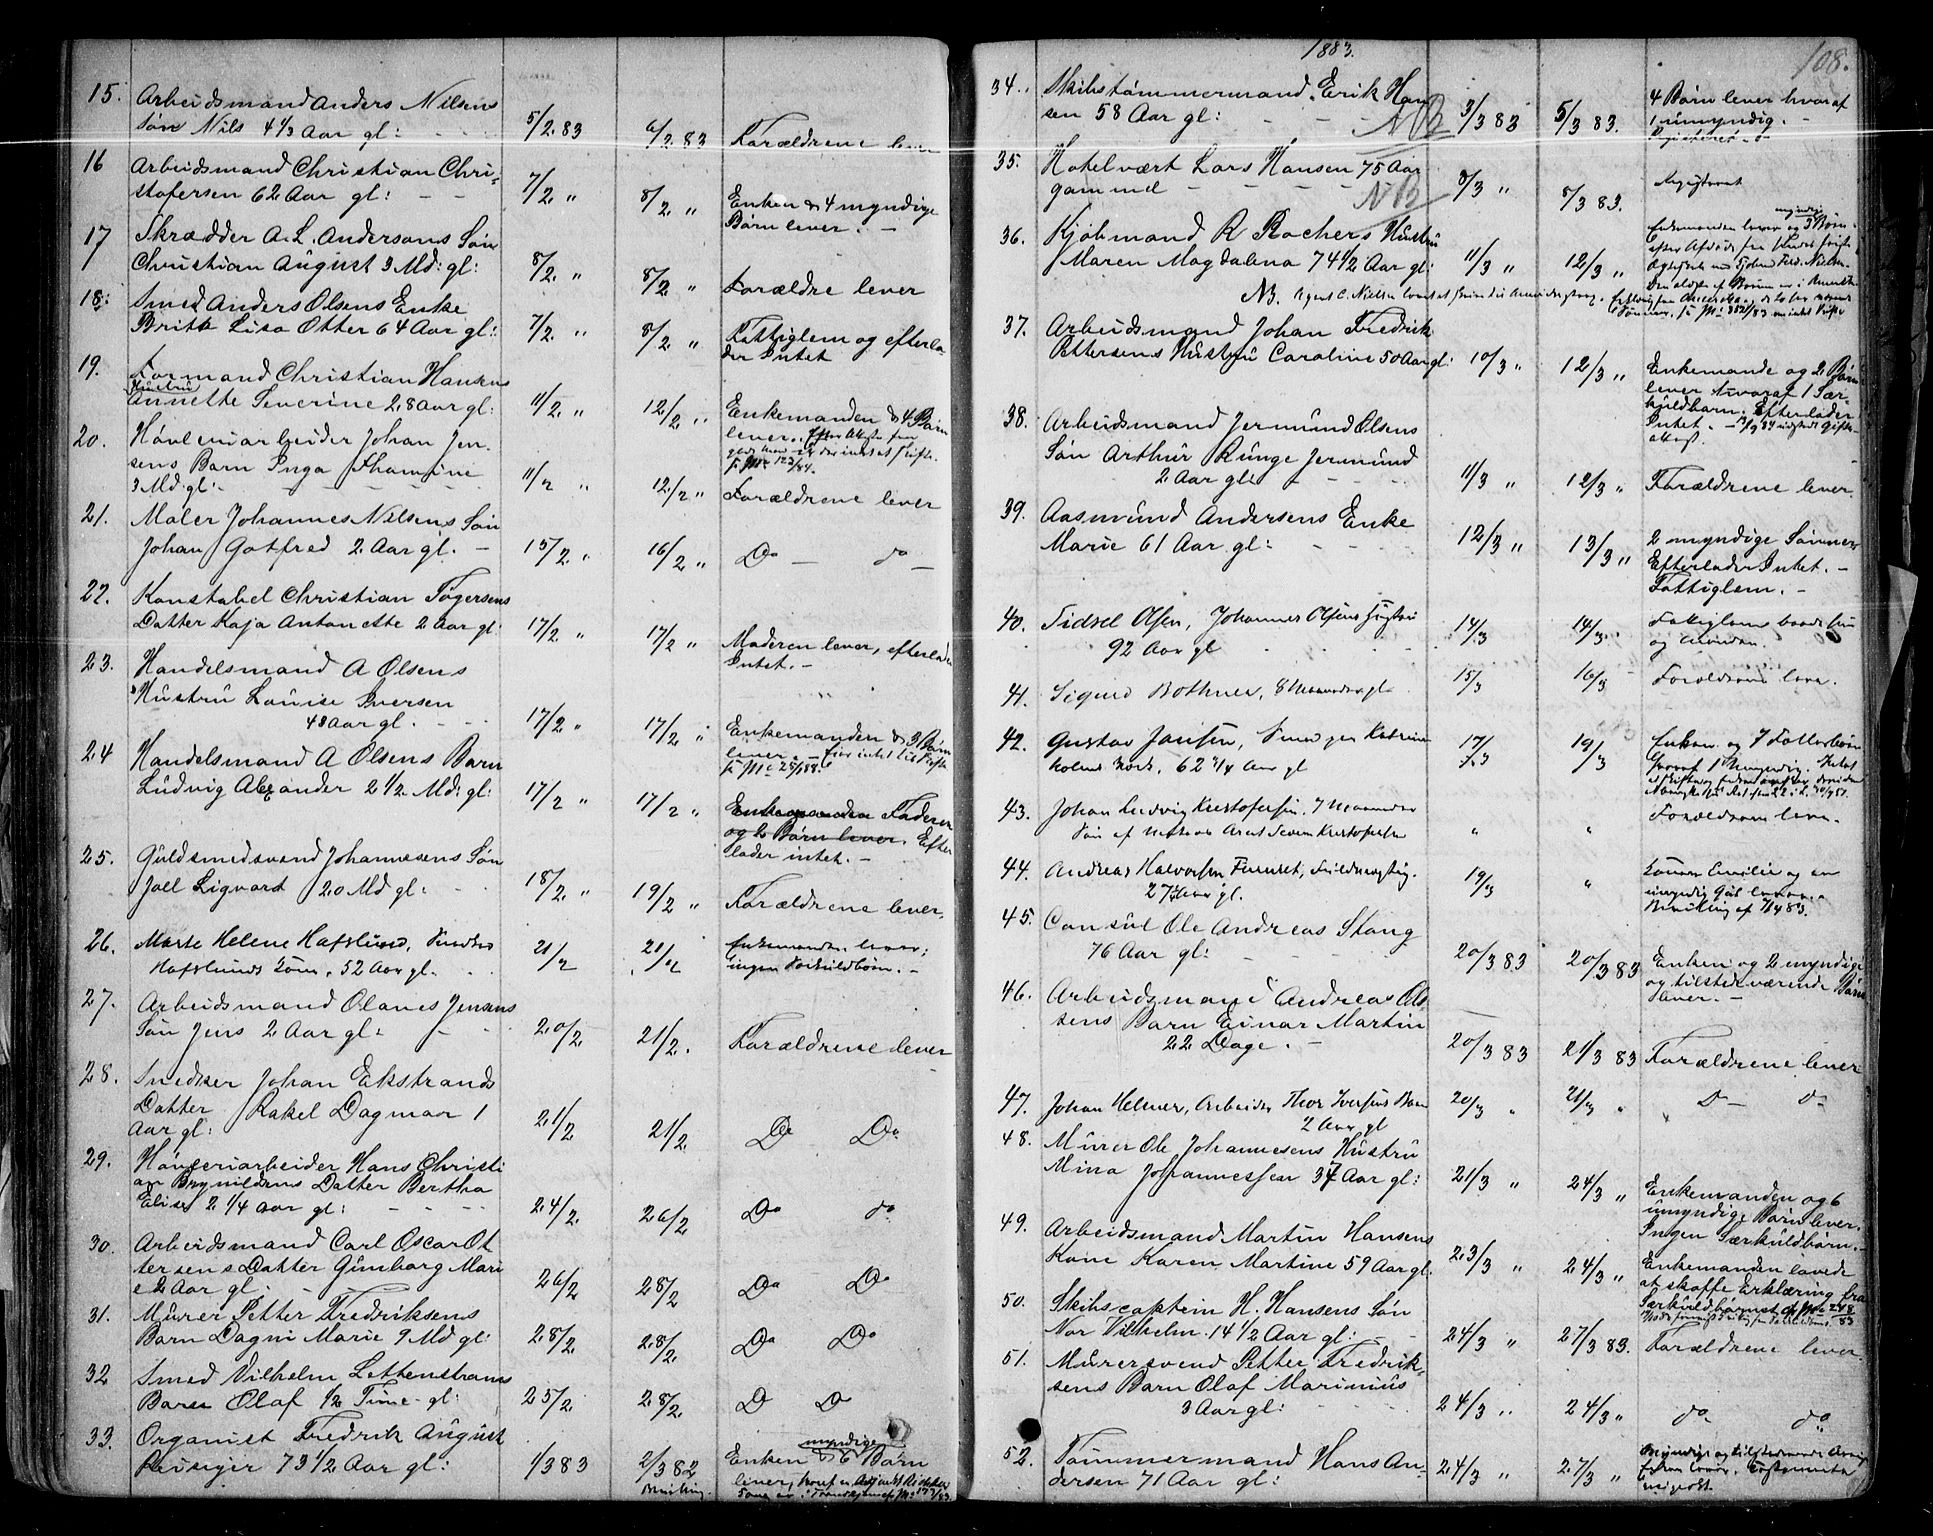 15. Arbeidsmand Anders Nilsens
Søn Nils 4 1/3 Aar gl: 5/2 83 6/2 83 Forældrene lever
16 Arbeidsmand Christian Chri-
stofersen 62 Aar gl: 7/2 " 8/2 " Enken & 4 myndige
Børn lever.
17 Skrædder A. L. Andersons Søn
Christian August 3 Md: gl: 8/2 " 8/2 " Forældre lever
18: Smed Anders Olsens Enke
Britte Lisa Otter 64 Aar gl: 7/2 " 8/2 " Fattiglem og efterla-
der Intet
19. Formand Christian Hansens
Hustru
Annette Severine 28 Aar gl: 11/2 " 12/2 " Enkemanden & 4 Børn
lever.
20. Høvleriarbeider Johan Jen-
sens Barn Inga Thomine
3 Md. gl: 11/2 " 12/2 " Forældrene lever
21. Maler Johannes Nilsens Søn
Johan Gotfred 2 Aar gl. 15/2 " 16/2 " Do do
22. Konstabel Christian Tøgersens
Datter Kaja Antonette 2 Aar gl: 17/2 " 17/2 " Moderen lever, efterlader
Intet.
23. Handelsmand A Olsens
Hustru Louise Iversen
48 Aar gl. 17/2 " 17/2 " Enkemanden & 3 Børn
lever.
24 Handelsmand A Olsens Barn
Ludvig Alexander 2 1/2 Md: gl: 17/2 " 17/2 " Enkemanden Faderen
og 2 Børn lever. Efter
lader intet.
25. Guldsmedsvend Johannesens Søn
Joel Sigvard 20 Md gl: 18/2 " 19/2 " Forældrene lever.
26. Marte Helene Hafslund,
Hafslunds Kone, 52 Aar gl. 21/2 21/2 Enkemanden lever;
ingen Særkuldbørn.
27. Arbeidsmand Olaves Jensens
Søn Jens 2 Aar gl: 20/2 21/2. Forældrene lever
28. Snedker Johan Ekstrands
Datter Rakel Dagmar 1
Aar gl: 21/2 21/2 Do Do
29. Høvleriarbeider Hans Christi
an Brynildsens Datter Bertha
Elise 2 1/4 Aar gl: 24/2. 26/2 Do do
30. Arbeidsmand Carl Oscar Ot
tersens Datter Gunborg Mari
e 2 Aar gl. 26/2 28/2 Do Do
31. Murer Petter Fredriksens
Barn Dagni Marie 9 Md gl: 28/2 28/2. Do Do
32 Smed Vilhelm Lettenstrøms
Barn Olaf 1/2 Time gl: 25/2 28/2. D Do
33. Organist Fredrik August
Reissiger 73 1/2 Aar gl: 1/3 83 2/3 83 Enken & 6 myndige Børn
Bevilling. lever,
1883.
108.
34. Skibstømmermand Erik Han
sen 58 Aar gl: NB 3/3 83 5/3 83. 4 Børn lever hvoraf
1 umyndig.
Registreret
35. Hotelvært Lars Hansen 75 Aar
gammel NB 8/3 " 8/3 83. Registreret
36. Kjøbmand R Rochers Hustru
Maren Magdalena 74 1/2 Aar gl: 11/3 " 12/3 " Enkemanden lever og 3 myndige Børn
NB.
37. Arbeidsmand Johan Fredrik
Pettersens Hustru Caroline 50 Aar gl: 10/3 " 12/3 " Enkemande og 2 Børn
lever hvoraf 1 Sær-
kuldbarn. Efterlader
Intet.
38. Arbeidsmand Jermund Olsens
Søn Arthur Runge Jermund
2 Aar gl: 11/3 " 12/3 " Forældrene lever
39. Aasmund Andersens Enke
Marie 61 Aar gl: 12/3 " 13/3 " 2 myndige Sønner
Efterlader Intet.
Fattiglem.
40. Sidsel Olsen, Johannes Olsens Hustru
92 Aar gl 14/3 14/3. Fattiglem baade hun
og Manden.
41. Sigurd Bothner, 8 Maaneder gl 15/3 16/3 Forældrene lever.
42. Gustav Jansen, Smed paa Katrine
holms Værk, 62 3/4 Aar gl 17/3 19/3 Enken og 7 Fællesbørn
hvoraf 1 Umyndig.
43. Johan Ludvig Kristofersen. 7 Maaneder
Søn af Severin Kristofersen " " Forældrene lever.
44. Andreas Halvorsen 27 Aar gl. 19/3 " Konen Emilie og en
umyndig Gut lever.
Bevilling af 7/4 83.
45. Consul Ole Andreas Stang
76 Aar gl: 20/3 83 20/3 83 Enken og 2 myndige
og tilstedeværende Børn
lever.
46. Arbeidsmand Andreas Ol-
sens Barn Einar Martin
22 Dage. 20/3 83 21/3 83 Forældrene lever
47. Johan Helmer, Arbeider Thor Iversens Barn
2 Aar gl 20/3 " 21/3 " Do do
48. Murer Ole Johannesens Hustru
Mina Johannessen 37 Aar gl: 21/3 " 24/3 " Enkemanden og 6
umyndige Børn lever.
Ingen Særkuldbørn.
49. Arbeidsmand Martin Hansens
Kone Karen Martine 59 Aar gl. 23/3 " 24/3 " Enkemanden lovede
at skaffe Erklæring fra
Særkuldbarnet
50. Skibscaptein H. Hansens Søn
Nor Vilhelm 14 1/2 Aar gl: 24/3 " 27/3 83. Forældrene lever
51. Murersvend Petter Fredrik-
sens Barn Olaf Marinius
3 Aar gl: 24/3 " 24/3 " do do
52. Tømmermand Hans An-
dersen 71 Aar gl: 24/3 " 27/3 "